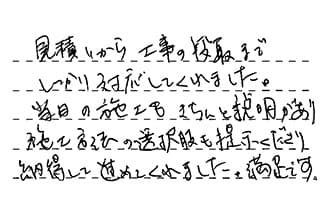 見積りから工事の段取まで
しっかり対応してくれました。
当日の施工もきちんと説明があり
施工方法の選択肢も提示くださり
納得して進めてくれました。満足です。